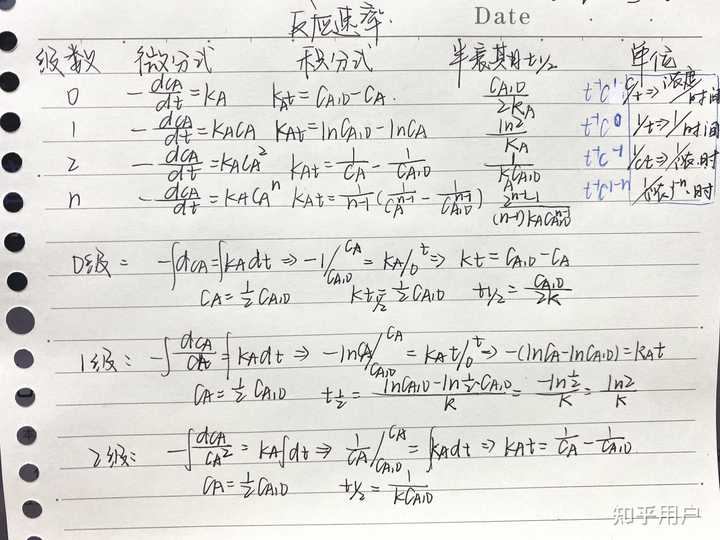 反应速率. Date
级数 微分式 积分式 半衰期t1/2 单位
0 -dCA/dt=kA kAt=CA,0-CA. CA,0/2kA t⁻¹C¹ C/t⇒浓度/时间
1 -dCA/dt=kACA kAt=lnCA,0-lnCA ln2/kA t⁻¹C⁰ 1/t⇒1/时间
2 -dCA/dt=kACA² kAt=1/CA-1/CA,0 1/kCA,0 t⁻¹C⁻¹ 1/ct⇒1/浓·时
n -dCA/dt=kACAⁿ kAt=1/n-1(1/CAⁿ⁻¹-1/CA,0ⁿ⁻¹) 2ⁿ⁻¹-1/(n-1)kACA,0ⁿ⁻¹ t⁻¹C¹⁻ⁿ
0级= -∫dCA=∫kAdt⇒-1/CA CA,0=kA/0 t⇒kt=CA,0-CA
CA=1/2CA,0 kt1/2=1/2CA,0 t1/2=CA,0/2k
1级: -∫dCA/CA=∫kAdt⇒-lnCA/CA CA,0=kAt/0 t⇒-(lnCA-lnCA,0)=kAt
CA=1/2CA,0 t1/2=lnCA,0-ln1/2CA,0/k=-ln1/2/k=ln2/k
2级: -∫dCA/CA²=kA∫dt⇒1/CA/CA CA,0=∫kAdt⇒kAt=1/CA-1/CA,0
CA=1/2CA,0 t1/2=1/kCA,0
知乎用户